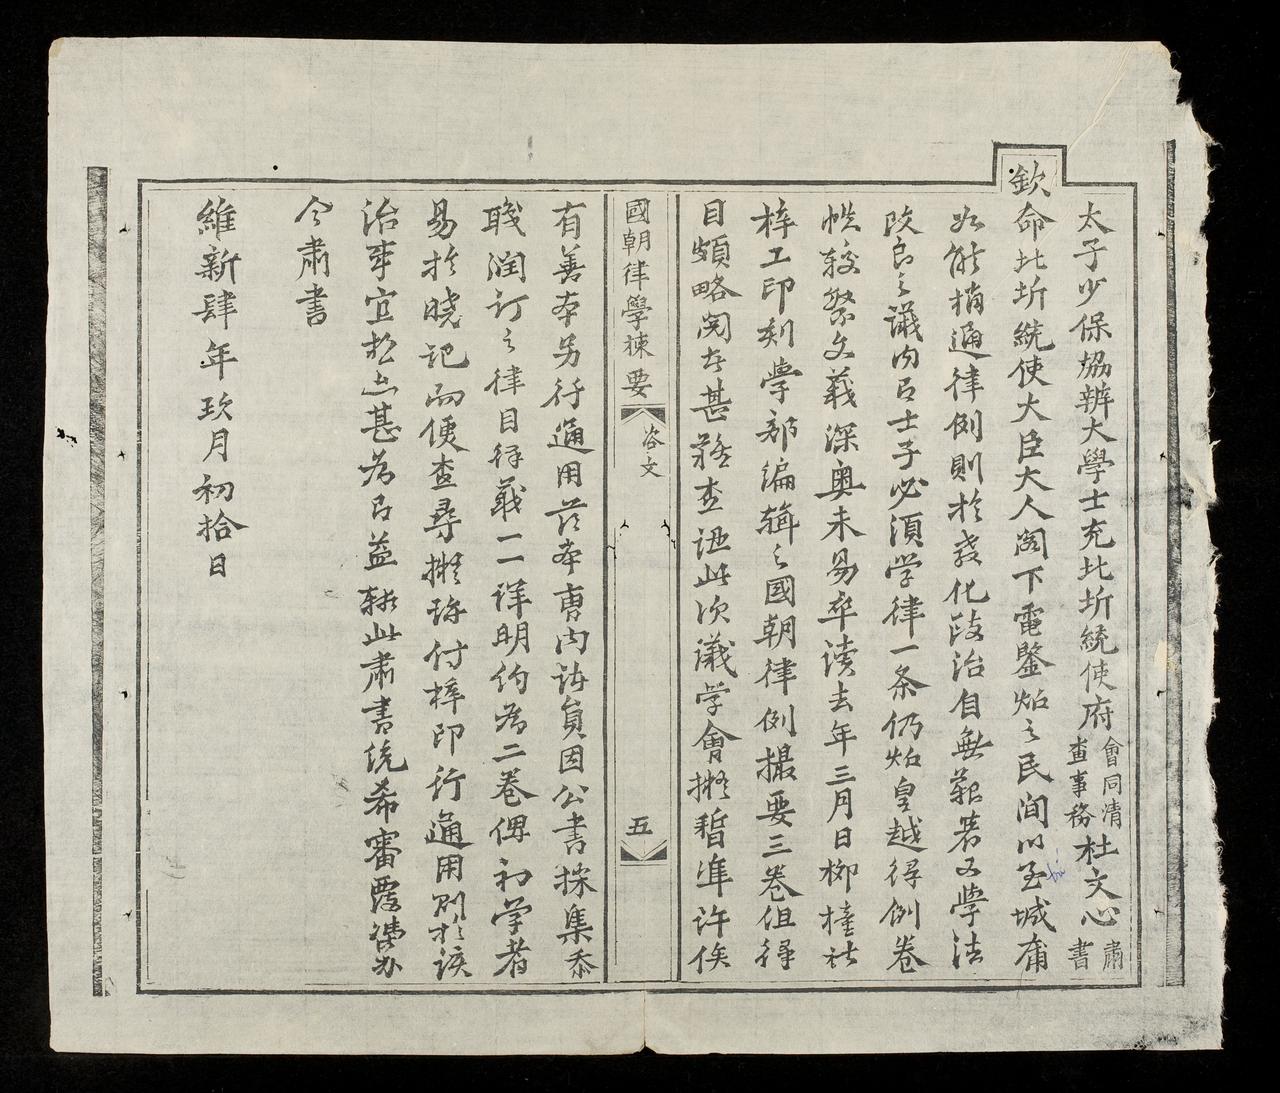 太子少保協辦大學士充北圻統使府會同清查事務杜文心肅書
欽命北圻統使大臣大人閣下電鑒炤之民間以至城庯
如能稍通律例則於教化政治自無艱著又學法
改良之議內呂士子必須学律一条仍炤皇越律例卷
帙較繁文義深奥未易卒讀去年三月日柳橦社
梓工印刻學部編輯之國朝律例撮要三卷但得
目頗略闕大甚難查詎此次議学會擬暫準許俟
國朝律學揀要
咨文
五
有善本另行通用茲本曹內該員因公書採集忝
職潤订之律目律義一一详明約為二卷俾初学者
易於曉記而便查尋擬將付梓印行通用則於该
治事宜於士甚為呂益輒此肅書统希審覆俾办
今肅書
維新肆年玖月初拾日